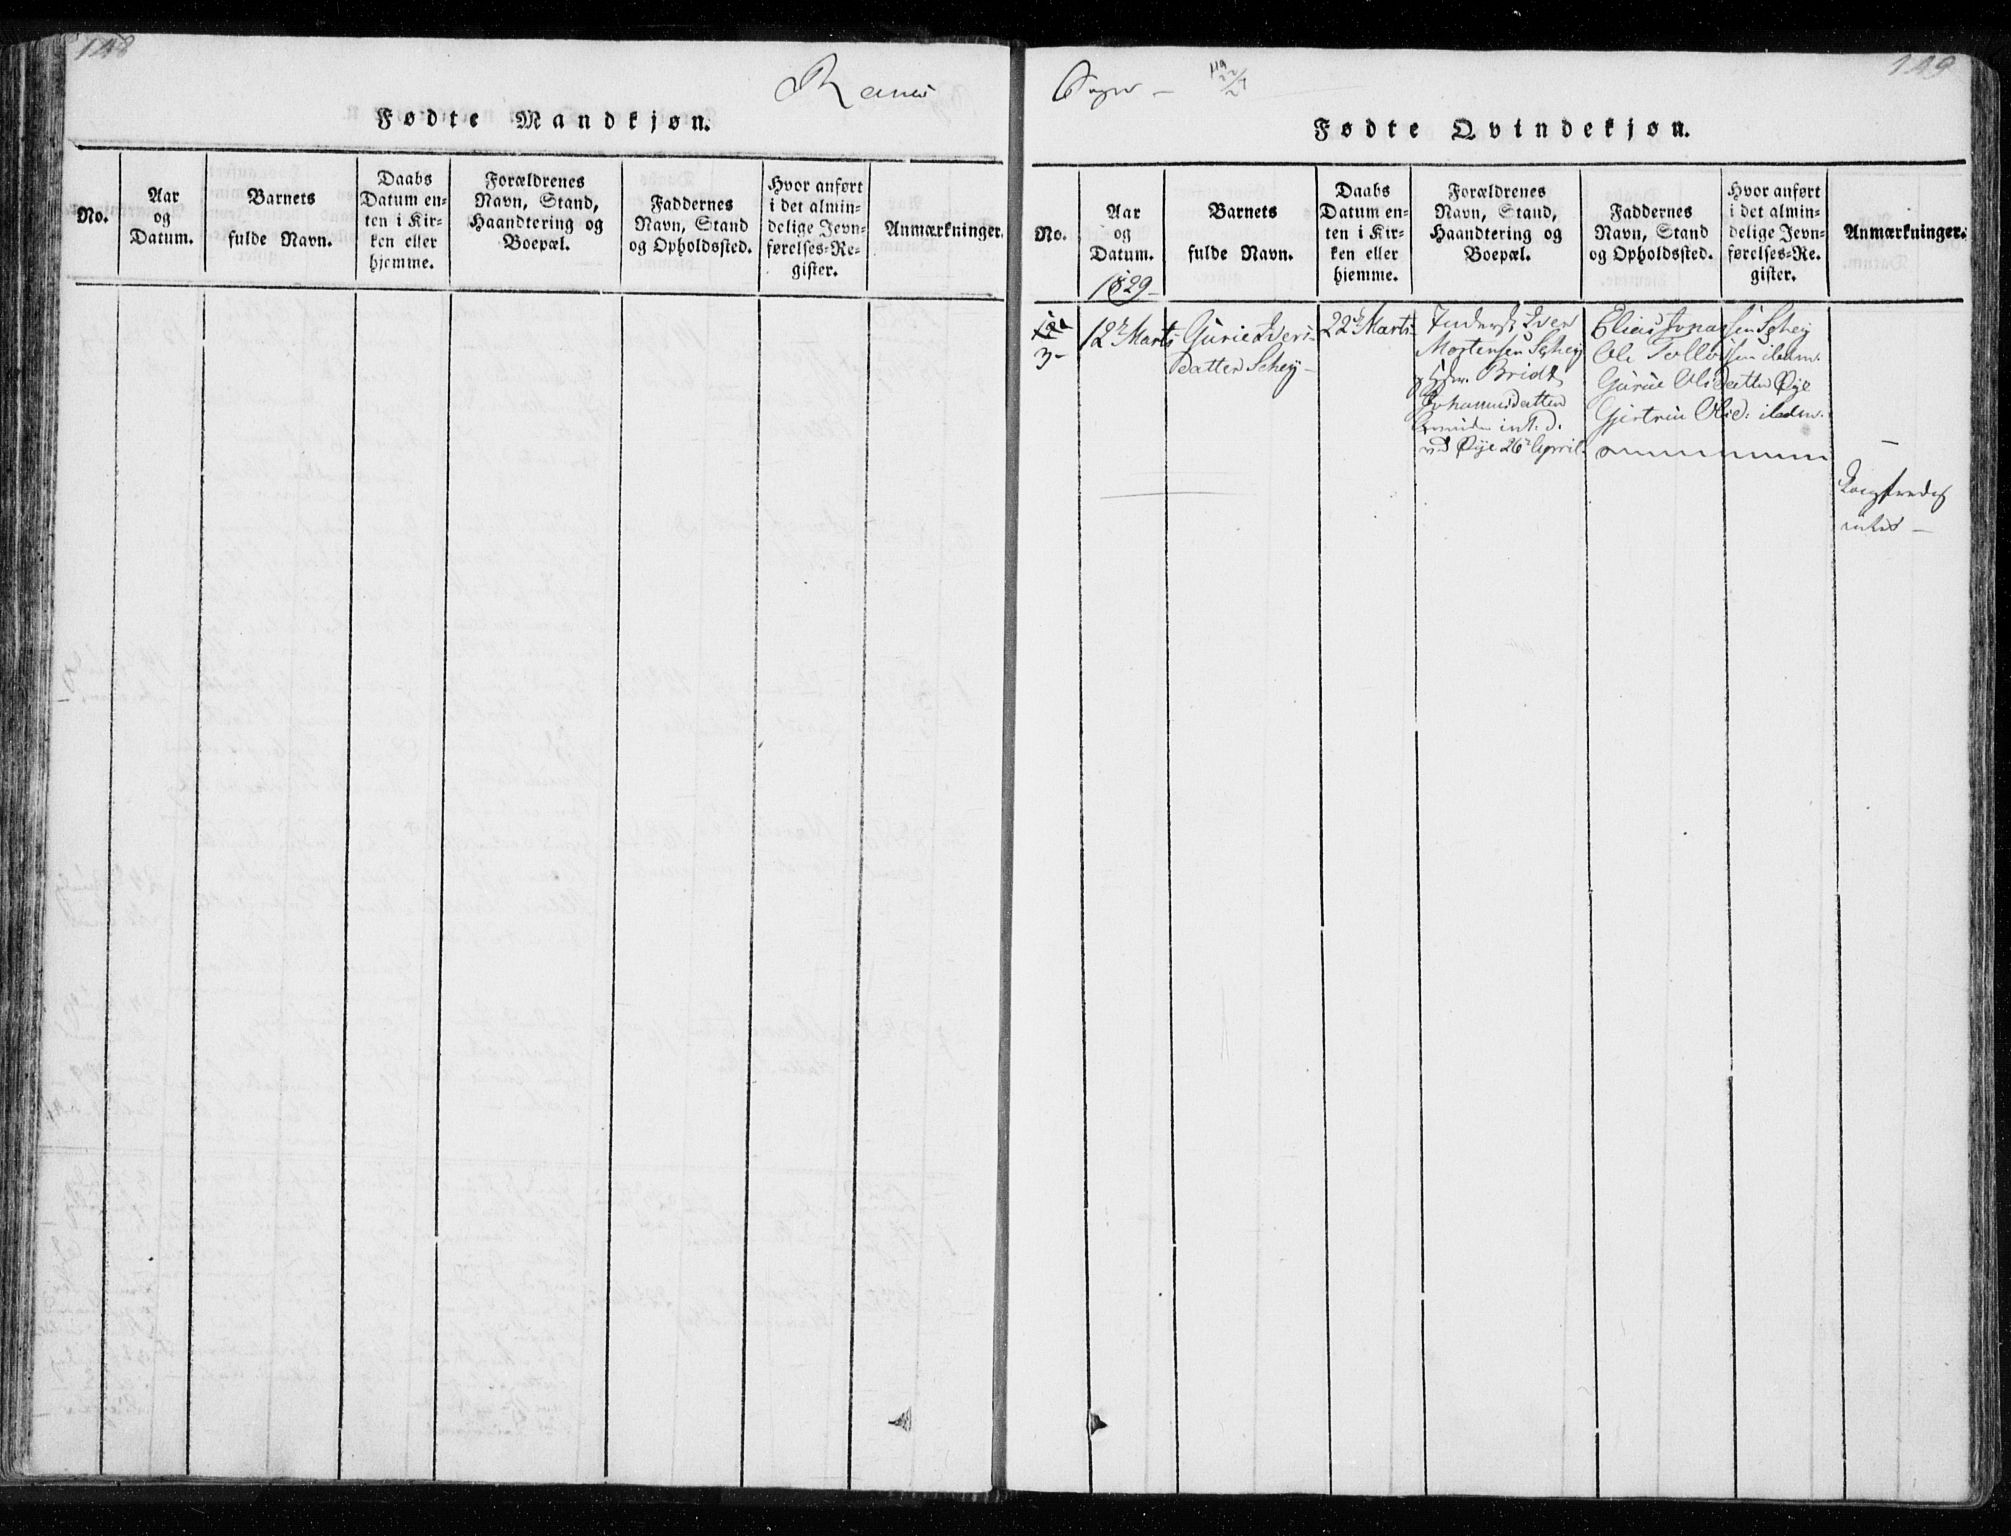 148
Ranes
Fødte Mandkjøn.
No.
Aar
og
Datum.
Barnets
fulde Navn.
Daabs
Datum en-
ten i Kir-
ken eller
hjemme.
Forældrenes
Navn, Stand,
Haandtering og
Boepæl.
Faddernes
Navn, Stand
og Opholdssted.
Hvor anført
i det almin-
delige Jevn-
førelses-Re-
gister.
Anmærkninger.
149
Sogn –
Fødte Qvindekjøn.
No.
Aar
og
Datum.
Barnets
fulde Navn.
Daabs
Datum en-
ten i Kir-
ken eller
hjemme.
Forældrenes
Navn, Stand,
Haandtering og
Boepæl.
Faddernes
Navn, Stand
og Opholdssted.
Hvor anført
i det almin-
delige Jevn-
førelses-Re-
gister.
Anmærkninger.
1829–
3–
12 Marts
Gurie Ivers-
datter Schey –
22 Marts
Iver
Mortensen Schey
Johannisdatter
Øye 26 April
Elias Jonassen Schey
Ole Tollossen
Gurie Olisdatter Øye
Gjertrue Olsd: